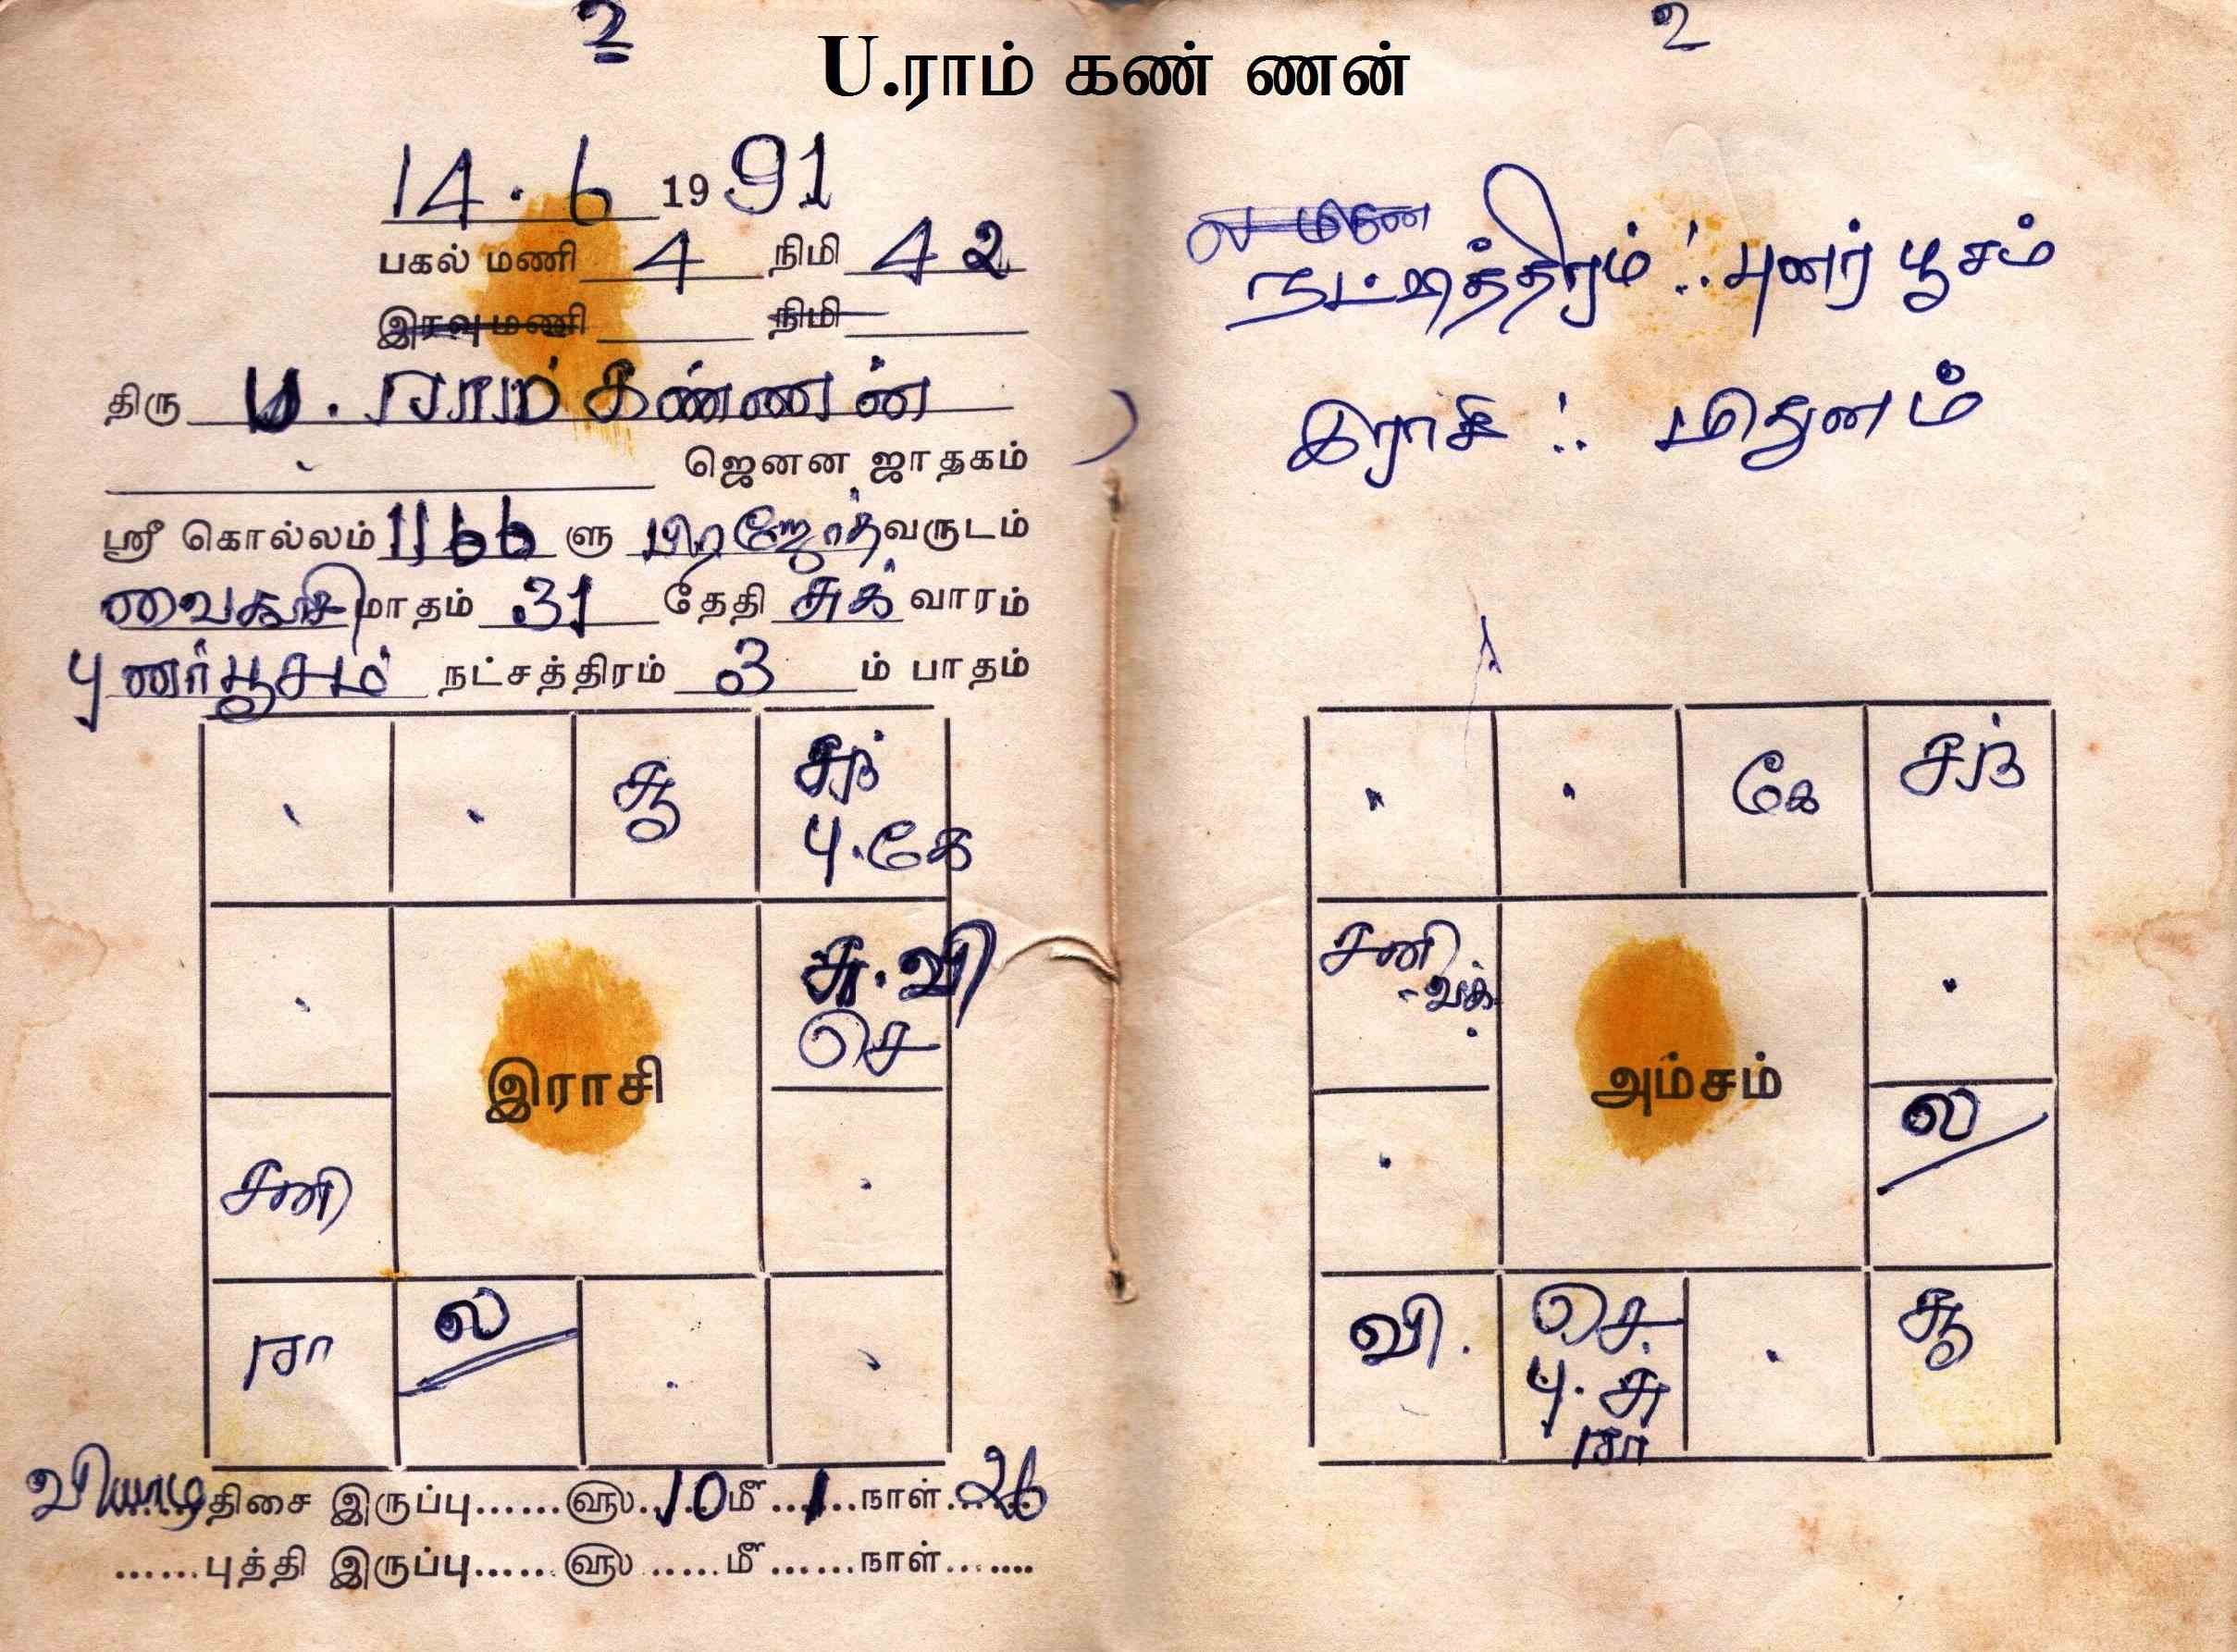 2
2
U.ராம் கண் ணன்
14.6 1991
பகல் மணி 4 நிமி 42
இரவு மணி நிமி
திரு U. ராம் கண்ணன்
ஜெனன ஜாதகம்
ஸ்ரீ கொல்லம் 1166 ளு பிரஜோத் வருடம்
வைகாசி மாதம் 31 தேதி சுக் வாரம்
புணர்பூசம் நட்சத்திரம் 3 ம் பாதம்
சூ
சந்
பு.கே
சு.வி
செ
இராசி
சனி
ரா
ல
வியாழ திசை இருப்பு......௵.....10மீ....1..நாள்..26
......புத்தி இருப்பு......௵.....மீ......நாள்.......
நட்ஷத்திரம் : புனர் பூசம்
இராசி : மிதுனம்
கே
சந்
சனி
-வக்
அம்சம்
ல
வி.
செ.
பு.சு
ரா
சூ